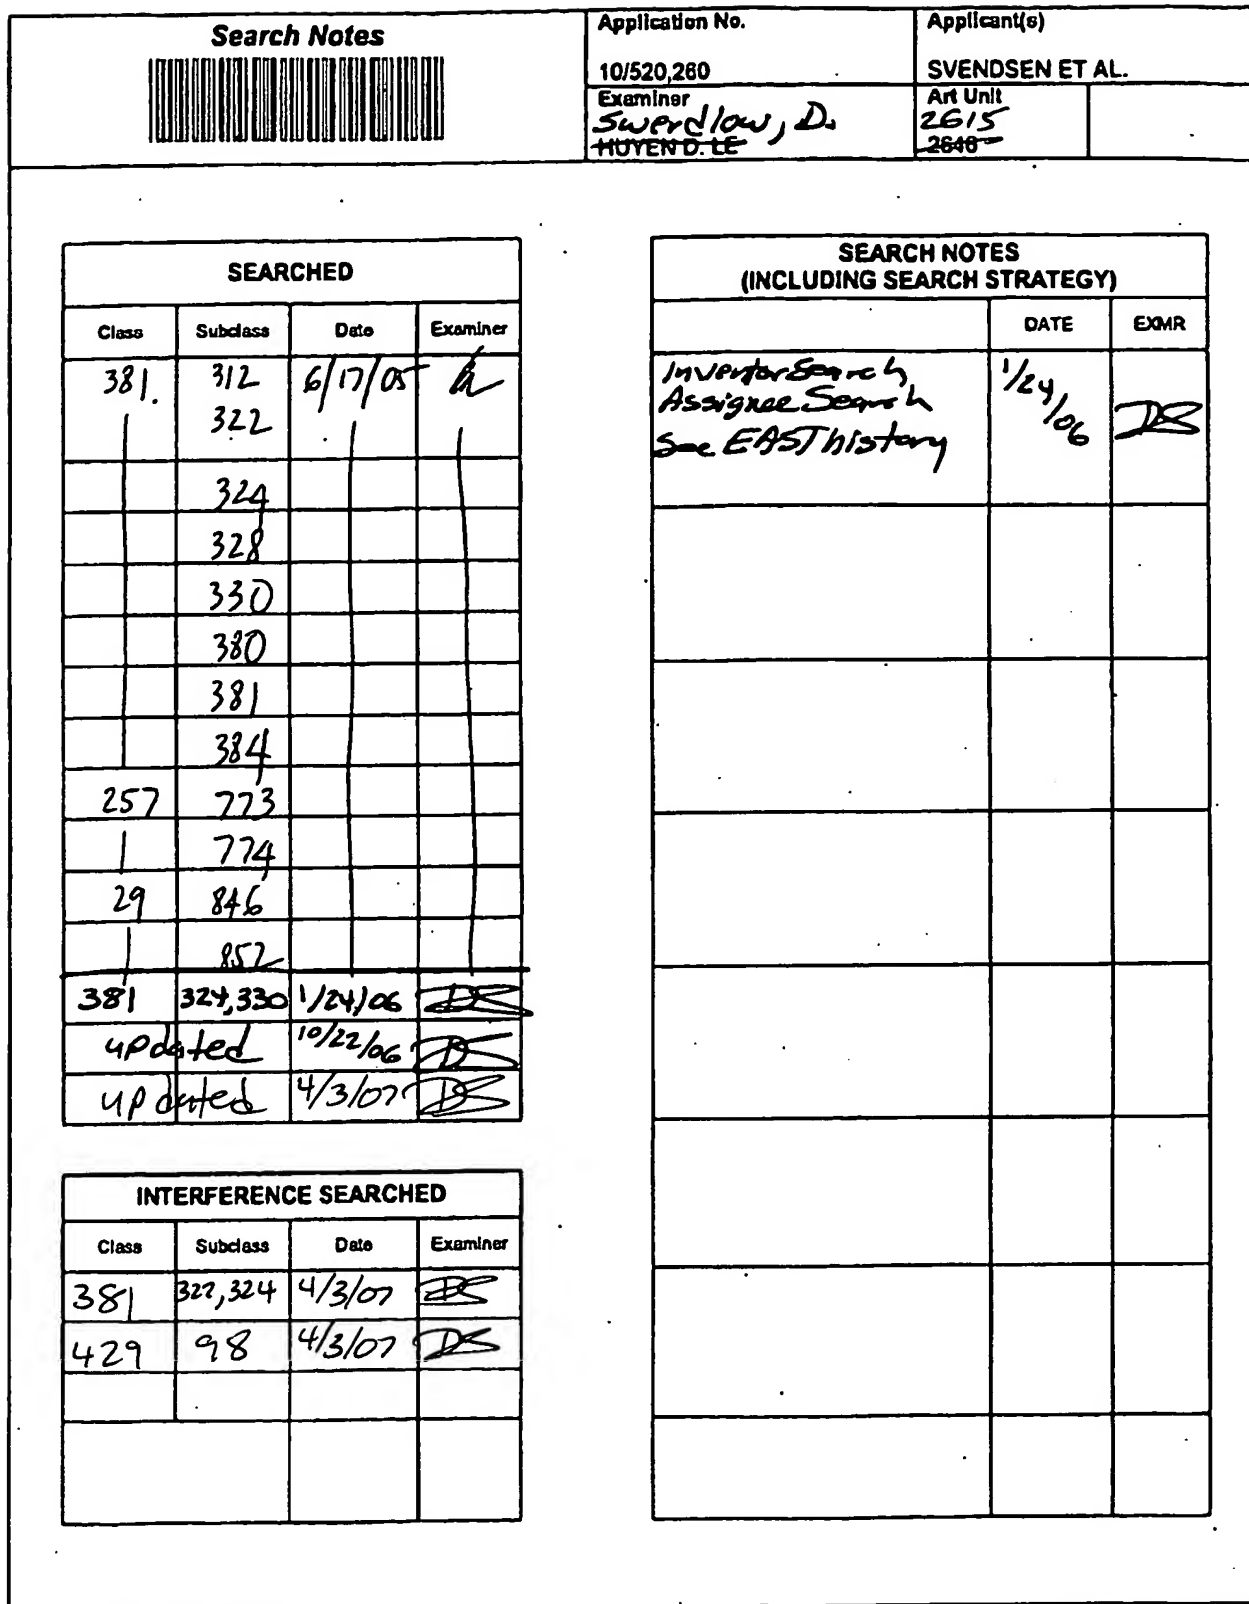 Search Notes
Application No.
Applicant(s)
10/520,260
SVENDSEN ET AL.
Examiner
Art Unit
Swerdlow, D.
2615
HUYEN D. LE
2646
SEARCHED
Class Subclass Date Examiner
381 312 6/17/05
322
324
328
330
380
381
384
257 773
774
29 846
852
381 324,330 1/24/06 DS
updated 10/22/06 DS
updated 4/3/07 DS
INTERFERENCE SEARCHED
Class Subclass Date Examiner
381 322,324 4/3/07 DS
429 98 4/3/07 DS
SEARCH NOTES
(INCLUDING SEARCH STRATEGY)
DATE EXMR
Inventor Search 1/24/06 DS
Assignee Search
See EAST history